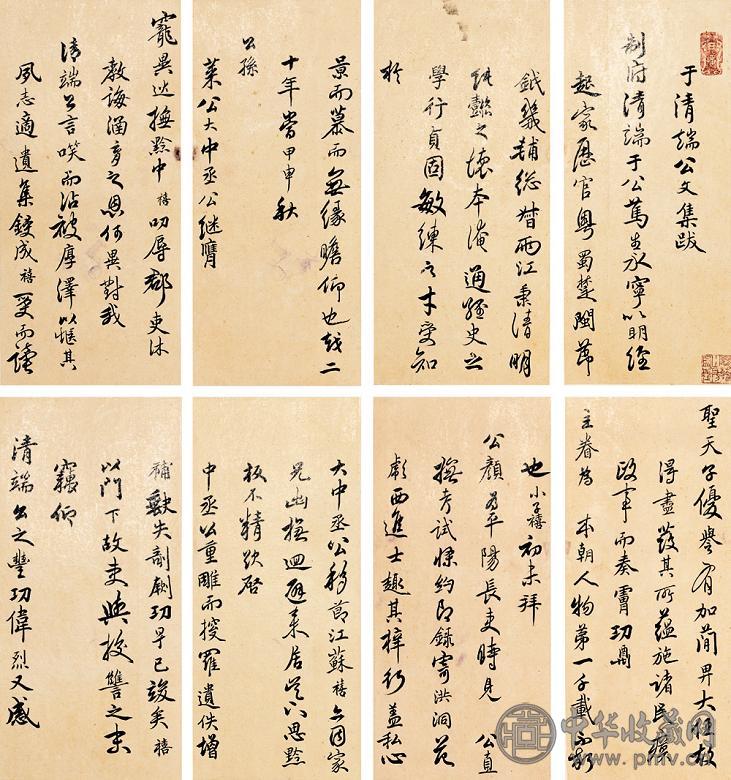 于清端公文集跋
制府清端于公篤生永寧以明經
起家歷官粵蜀楚閩節
鉞畿輔總督兩江秉清明
純懿之懷本淹通經史之
學行貞固敏練之才受知
於
聖天子優譽有加簡畀大任故
得盡發其所蘊施諸民
政事而奏膚功鼎
主眷為 本朝人物第一千載
也小子禧初未拜
公顏為平陽長吏時見 公直
撫考試條約即錄寄洪洞范
彪西進士趣其梓行蓋私心
景而慕而無緣瞻仰也越二
十年當甲申秋
公孫
萊公大中丞公繼膺
寵異 撫黔中禧叨辱郡吏沐
教誨涵育之恩何異對我
清端公言笑而沾被厚澤以愜其
夙志適遺集鋟成禧受而讀
大中丞公移節江蘇禧亦因家
兄幽撫迴避來居吳下思黔
板不精欲啓
中丞以重雕而搜羅遺佚增
補闕失剞劂功早已竣矣禧
以門下故吏與校讐之末
竊仰
清端公之豐功偉烈又感
中华收藏网
www.pmv.cn